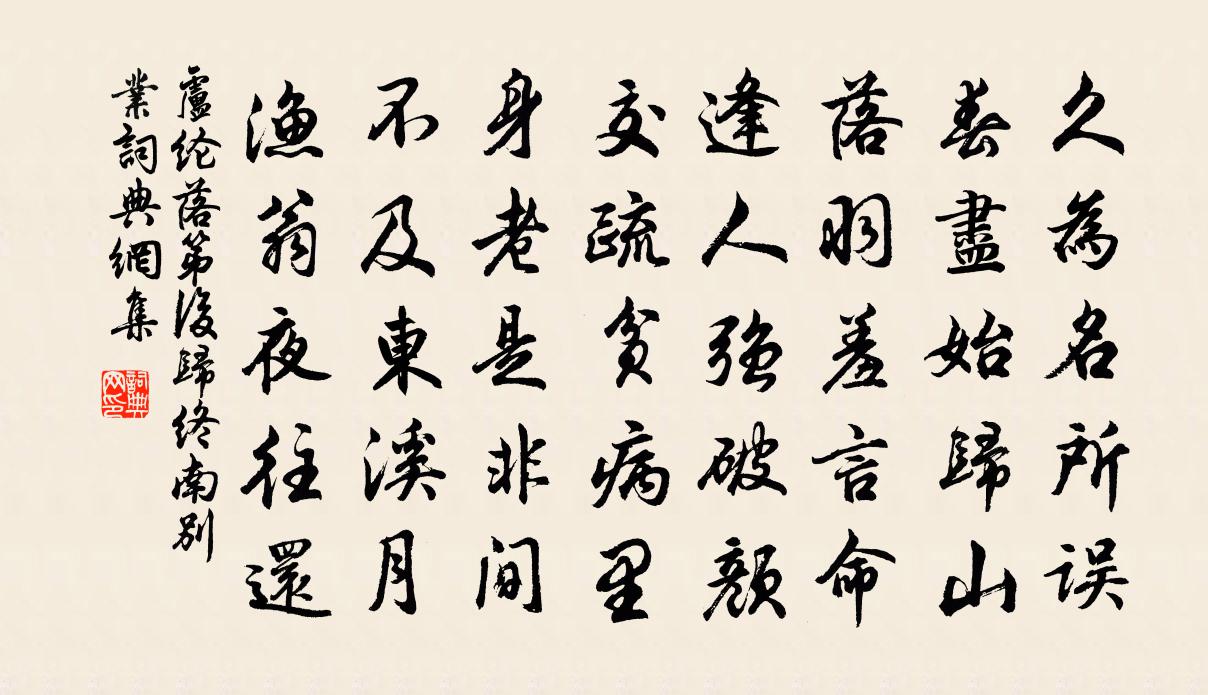 久為名所误
春盡始歸山
落羽羞言命
逢人强破顏
交疏貧病里
身老是非间
不及東溪月
漁翁夜往還
盧纶落第後歸终南别
業詞典網集
詞典网印